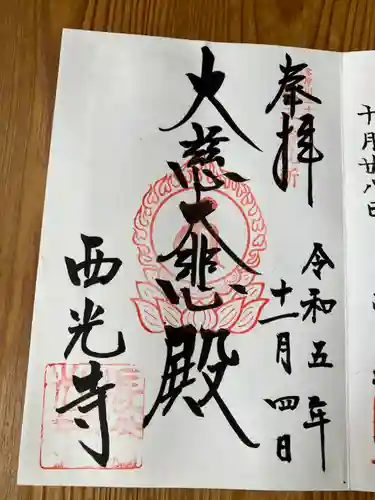 十月廿八日
奉拝
令和五年
十一月四日
大慈大悲殿
西光寺